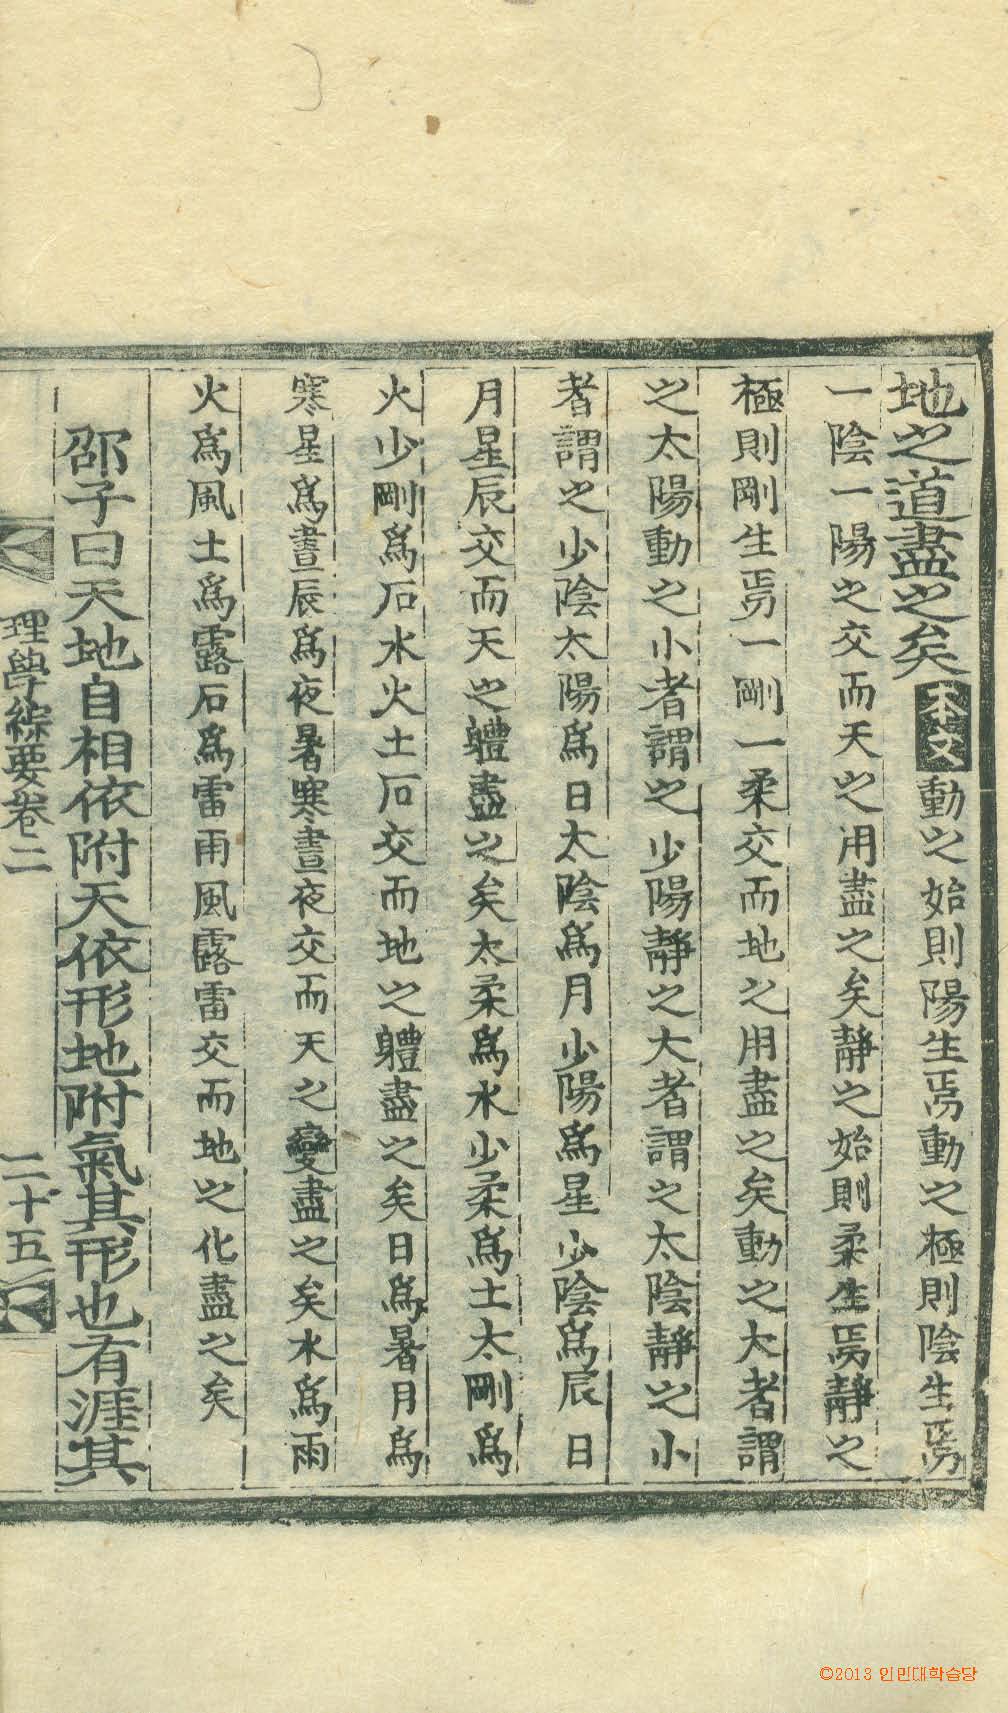 地之道盡之矣本文動之始則陽生焉動之極則陰生焉
一陰一陽之交而天之用盡之矣靜之始則柔生焉靜之
極則剛生焉一剛一柔交而地之用盡之矣動之大者謂
之太陽動之小者謂之少陽靜之大者謂之太陰靜之小
者謂之少陰太陽爲日太陰爲月少陽爲星少陰爲辰日
月星辰交而天之軆盡之矣太柔爲水少柔爲土太剛爲
火少剛爲石水火土石交而地之軆盡之矣日爲暑月爲
寒星爲晝辰爲夜暑寒晝夜交而天之變盡之矣水爲雨
火爲風土爲露石爲雷雨風露雷交而地之化盡之矣
邵子曰天地自相依附天依形地附氣其形也有涯其
理學綜要卷二 二十五
©2013 인민대학습당